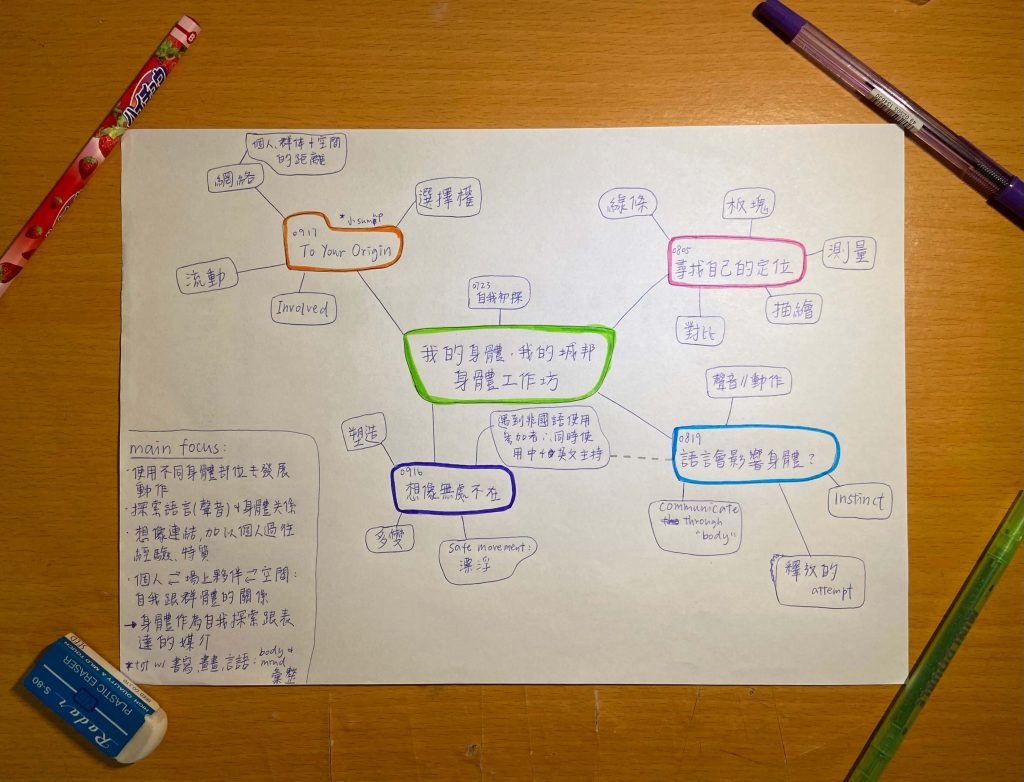 個人、群体+空間
的距離
網絡
選擇權
*小sum
0917
To Your Origin
流動
Involved
線條
板塊
0805
尋找自己的定位
測量
描繪
對比
0723
自我初探
我的身體·我的城邦
身體工作坊
聲音//動作
0819
語言會影響身體?
Instinct
communicate
through
"body"
釋放的
attempt
塑造
遇到非國語使用
參加者∴同時使
用中+英文主持
0916
想像無處不在
多變
safe movement:
漂浮
main focus:
·使用不同身體部位去發展
動作
·探索語言(聲音)&身體關係
·想像連結,加以個人過往
經驗、特質
·個人⇄場上夥伴⇄空間:
自我跟群體的關係
→身體作為自我探索跟表
達的媒介
w/ 書寫,畫畫,言語: body &
mind
彙整
ハイチュウ
B
Radar
PLASTIC ERASER
S-80
HIGH QUALITY & MILD TOUCH